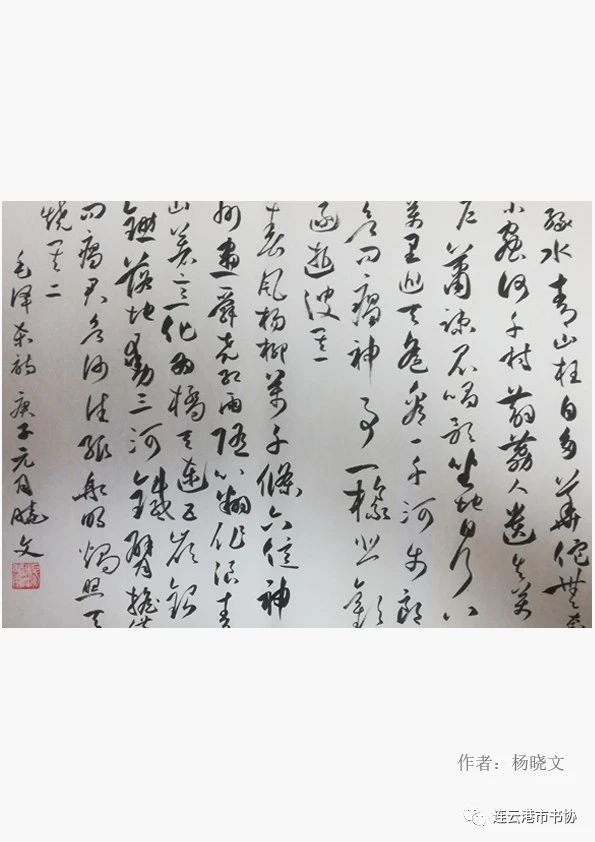 绿水青山枉自多華佗無奈
小蟲何千村薜荔人遗矢万
户蕭疏鬼唱歌坐地日行八
萬里巡天遥看一千河牛郎
欲问瘟神事一樣悲歡
逐逝波其一
春風杨柳萬千條六億神
州盡舜尧红雨随心翻作浪青
山着意化为橋天连五岭银
鋤落地動三河鐵臂摇借
问瘟君欲何往纸船明烛照天
燒其二
毛泽东诗庚子元月晓文
作者：杨晓文
连云港市书协